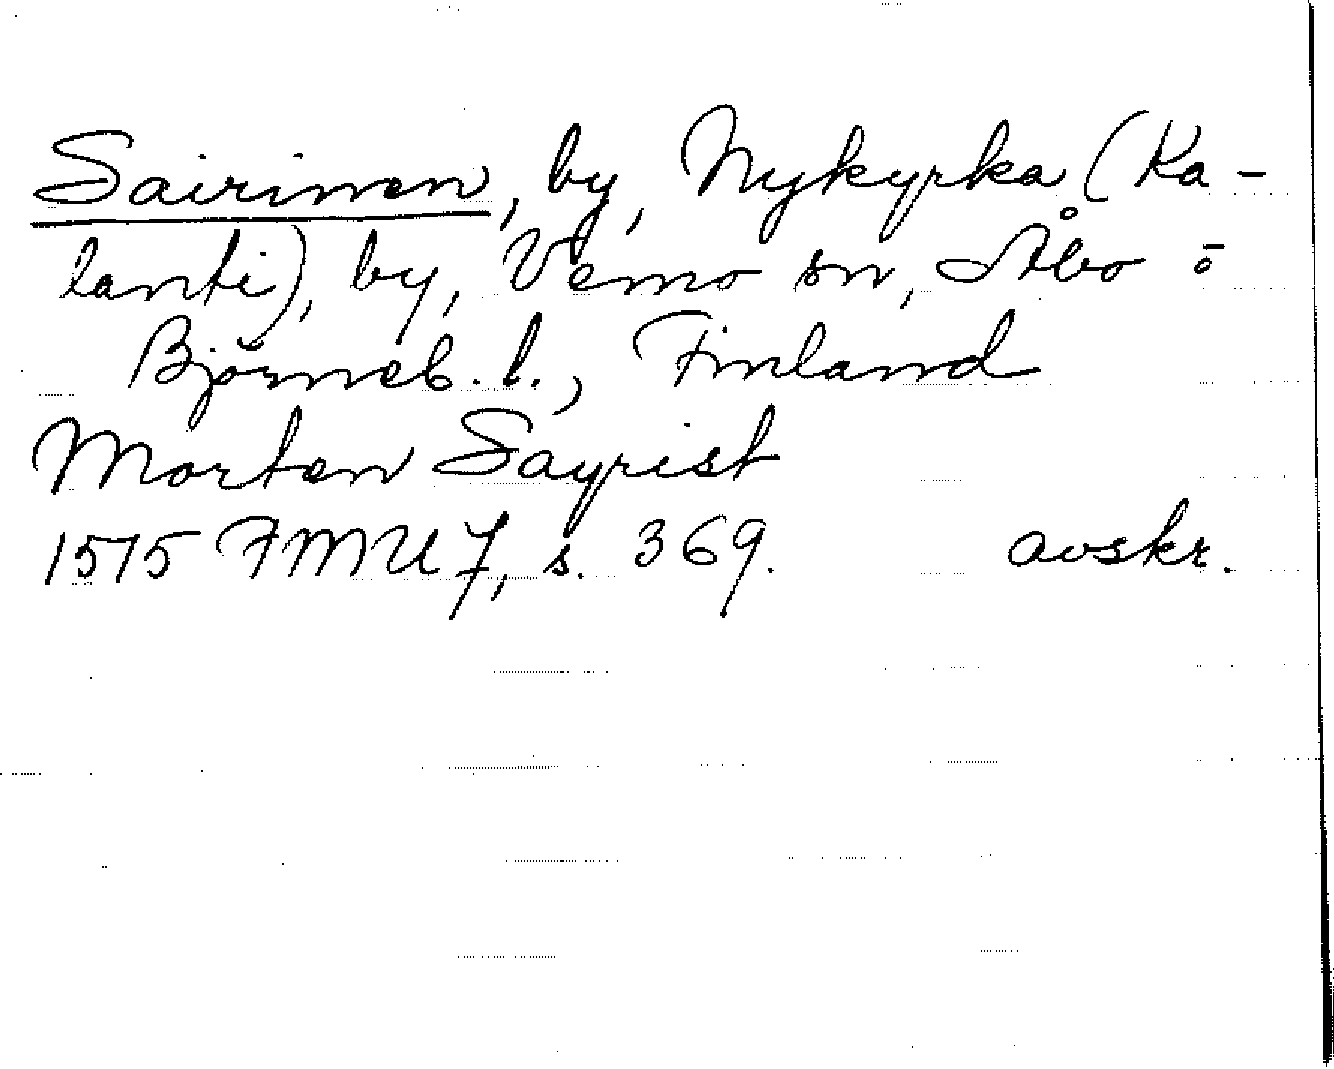 Sairinen, by, Nykyrka (Ka-
lanti), by, Vemo sn, Åbo o
Björneb. l., Finland
Morten Sayrist
1575 FMU 7, s. 369. avskr.